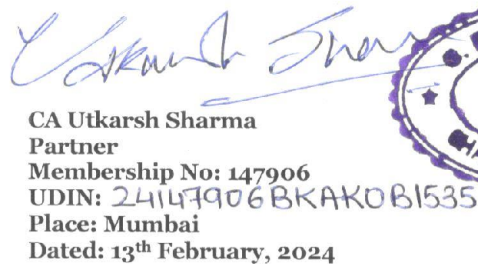 Utkarsh Sharma
CA Utkarsh Sharma
Partner
Membership No: 147906
UDIN: 24147906BKAKOB1535
Place: Mumbai
Dated: 13th February, 2024